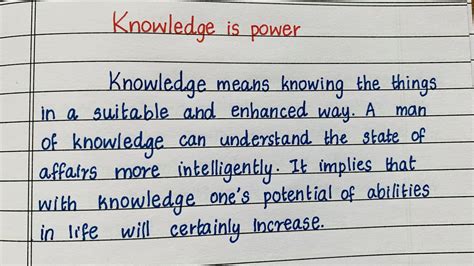 Knowledge is power
Knowledge means knowing the things
in a suitable and enhanced way. A man
of knowledge can understand the state of
affairs more intelligently. It implies that
with knowledge one's potential of abilities
in life will certainly increase.